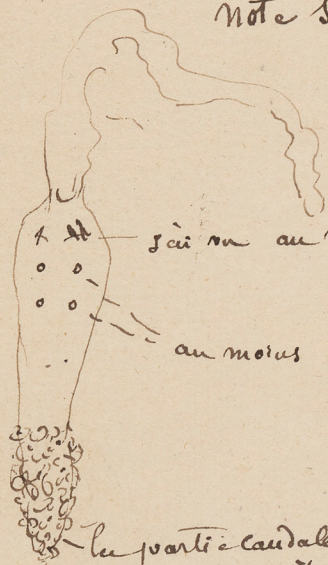 Note
J'ai vu au
au moins
la partie caudale